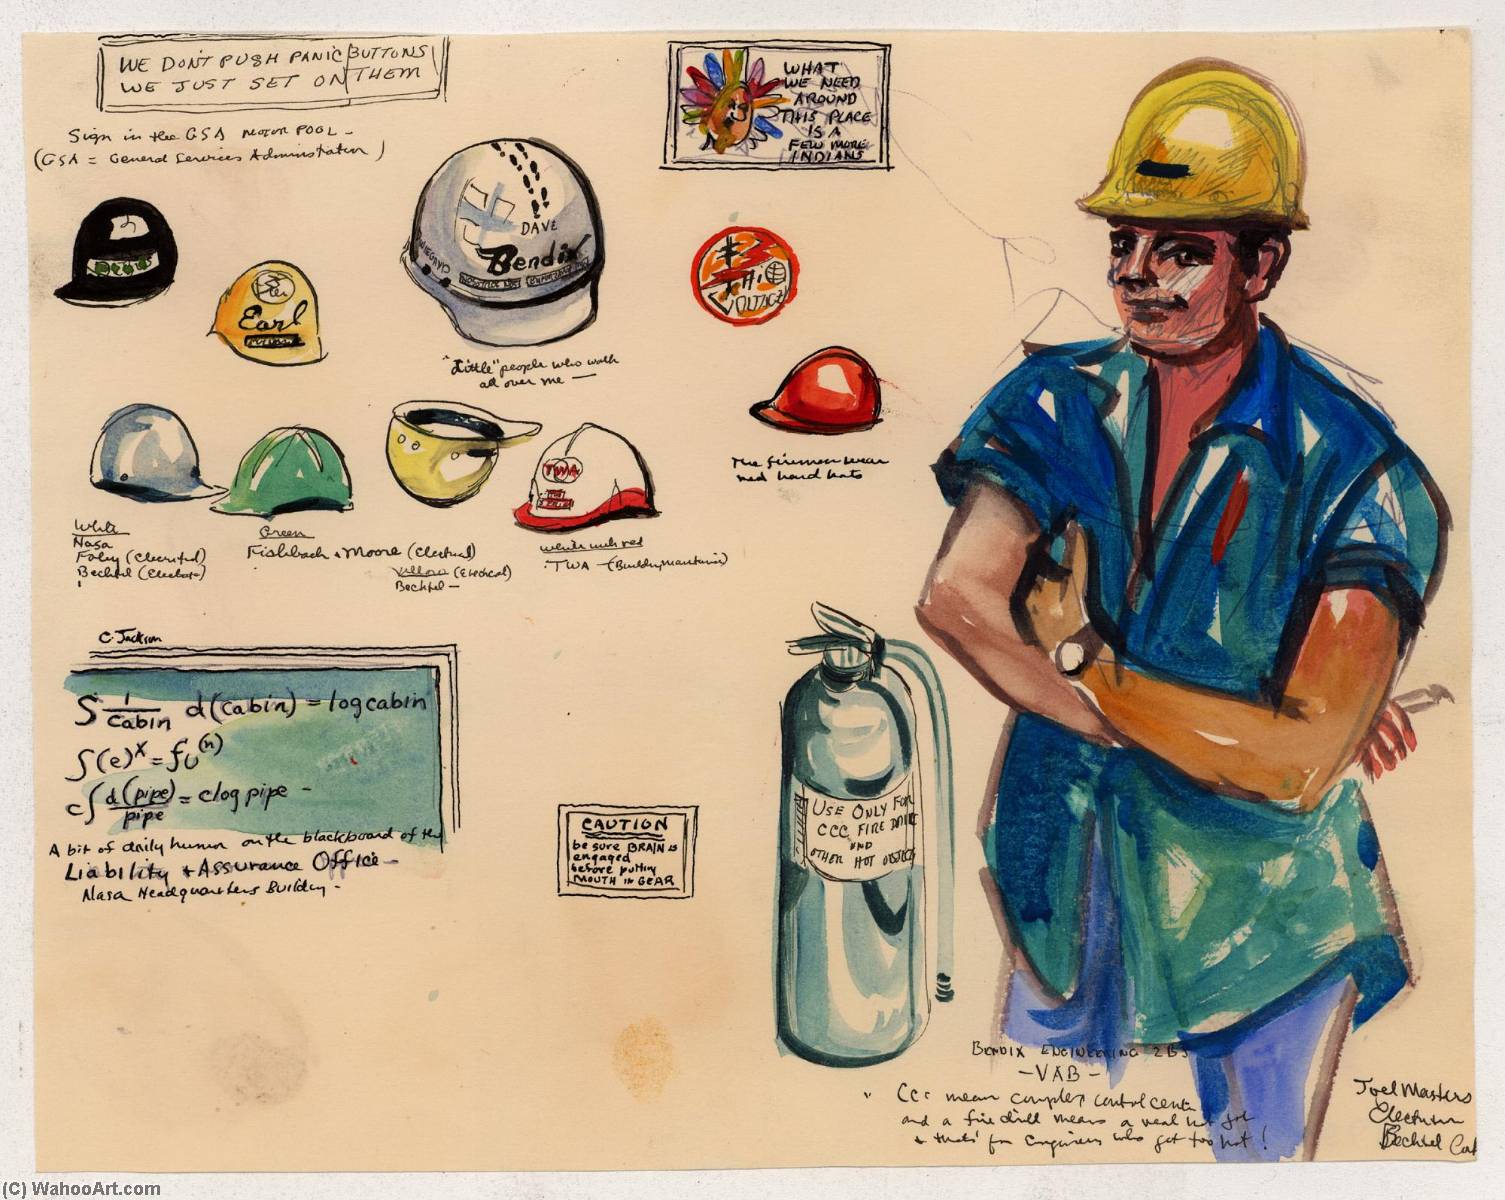 WE DON'T PUSH PANIC BUTTONS
WE JUST SET ON THEM
Sign in the GSA MOTOR POOL -
(GSA = General Services Administration)
WHAT
WE NEED
AROUND
THIS PLACE
IS A
FEW MORE
INDIANS
DAVE
Bendix
Earl
HI
VOLTAGE
"Little" people who walk
all over me —
The firemen wear
red hard hats
TWA
White
Nasa
Foley (Electrical)
Bechtel
Green
Fishbach + Moore (Electrical)
Yellow (Electrical)
Bechtel —
White with red
TWA — (Building maintainance)
C. Jackson
∫ 1/cabin d(cabin) = log cabin
∫(e)^x = fu^(n)
c∫ d(pipe)/pipe = clog pipe -
A bit of daily humor on the blackboard of the
Liability + Assurance Office —
Nasa Headquarters Building -
CAUTION
be sure BRAIN is
engaged
before putting
MOUTH in GEAR
USE ONLY FOR
CCC FIRE DRILL
AND
OTHER HOT OBJECTS
BENDIX ENGINEERING
- VAB -
" CCC mean complex control center
and a fire drill means a real hot job
+ that's for Engineers who get too hot!
Joel Masters
Electrician
Bechtel
(C) WahooArt.com